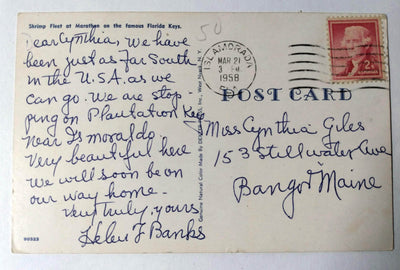 Shrimp Fleet at Marathon on the famous Florida Keys.
50
Dear Cynthia, We have
been just as far South
in the U.S.A. as we
can go. We are stop-
ping on Plantation Key
Near Is moralda.
Very beautiful here
We will soon be on
our way home.
Very truly yours
Helen F Banks
90323
Genuine Natural Color Made By
Inc., West Nyack, N.Y.
ISLAMORADA
MAR 21
3 PM
1958
FLA.
2¢
POST CARD
Miss Cynthia Giles
153 Stillwater Ave
Bangor Maine